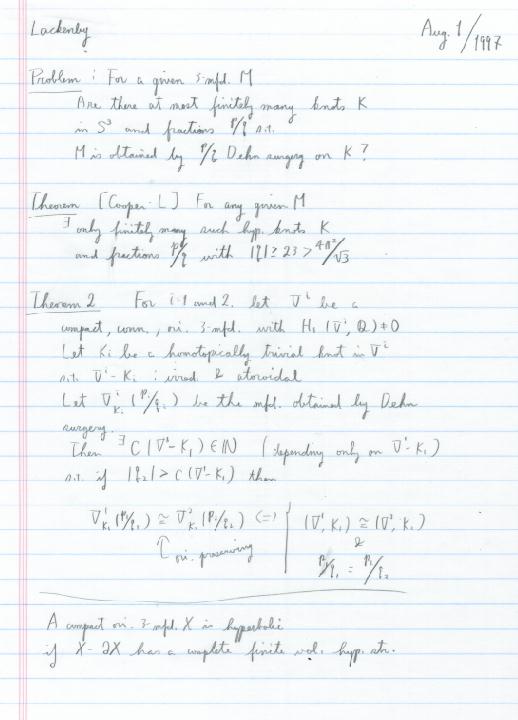 Lackenby
Aug. 1/1997
Problem : For a given 3-mfd. M
Are there at most finitely many knots K
in S³ and fractions p/q s.t.
M is obtained by p/q Dehn surgery on K ?
Theorem [Cooper-L] For any given M
∃ only finitely many such hyp. knots K
and fractions p/q with |q| ≥ 23 > 4π²/√3
Theorem 2 For i=1 and 2. let V^i be a
compact, conn., ori. 3-mfd. with H₁(V^i, Q) ≠ 0
Let K_i be a homotopically trivial knot in V^i
s.t. V^i - K_i : irred. & atoroidal
Let V^i_{K_i}(p_i/q_i) be the mfd. obtained by Dehn
surgery.
Then ∃ C(V¹-K₁) ∈ N (depending only on V¹-K₁)
s.t. if |q₂| > C(V¹-K₁) then
V¹_{K₁}(p₁/q₁) ≅ V²_{K₂}(p₂/q₂) ⇔ { (V¹, K₁) ≅ (V², K₂)
&
ori. preserving
p₁/q₁ = p₂/q₂
A compact ori. 3-mfd. X is hyperbolic
if X - ∂X has a complete finite vol. hyp. str.